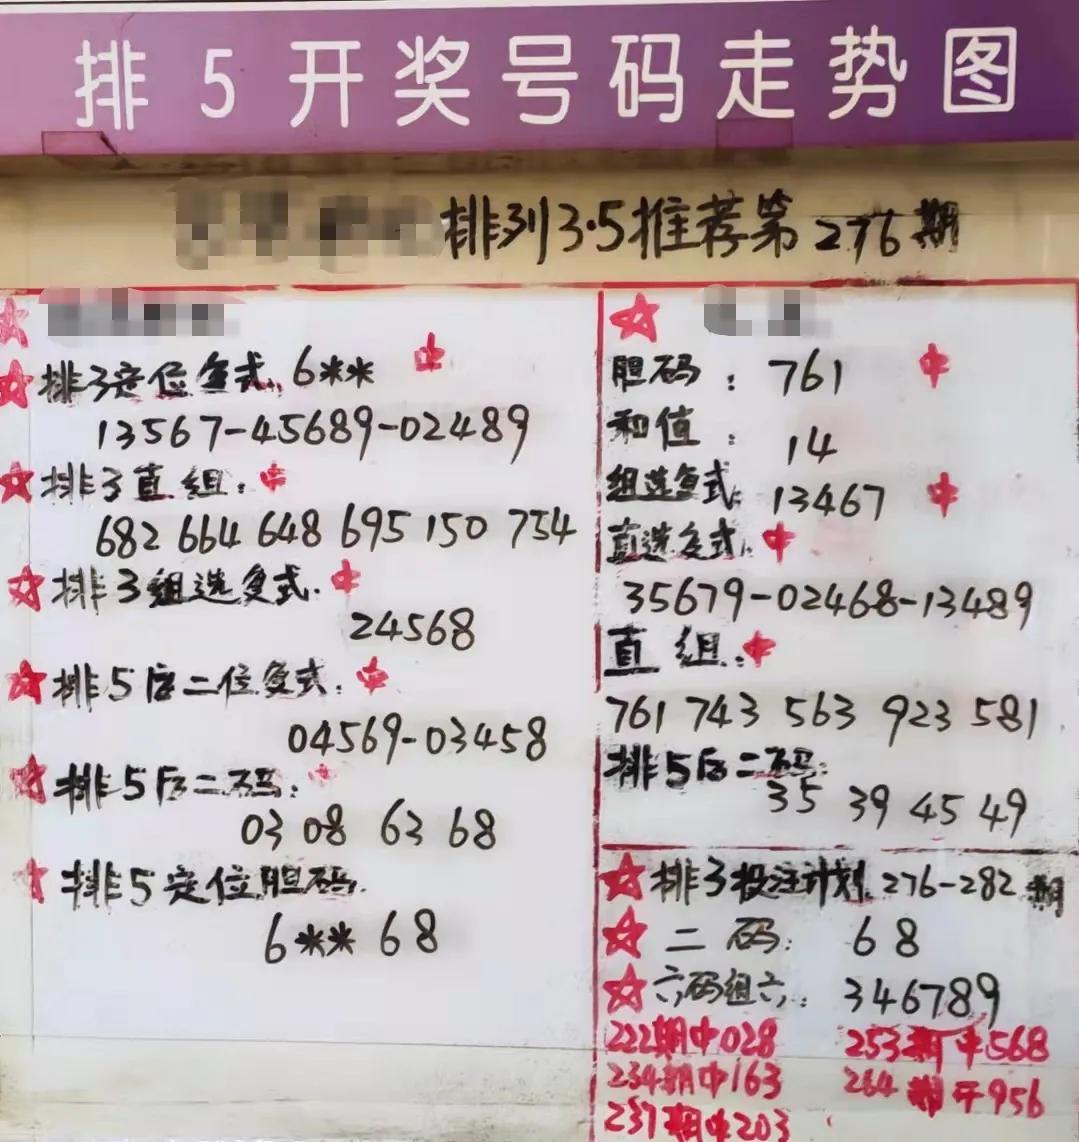 排5开奖号码走势图
排列3·5推荐第276期
排3定位复式:6** 中
13567-45689-02489
排3直组: 中
682 664 648 695 150 754
排3组选复式: 中
24568
排5后二位复式: 中
04569-03458
排5后二码:
03 08 63 68
排5定位胆码:
6** 68
胆码: 761 中
和值: 14
组选复式: 13467 中
直选复式: 中
35679-02468-13489
直组: 中
761 743 563 923 581
排5后二码:
35 39 45 49
排3投注计划:276-282期
二码: 68
六码组六: 346789
222期中028 253期中568
234期中163 264期开956
237期中203